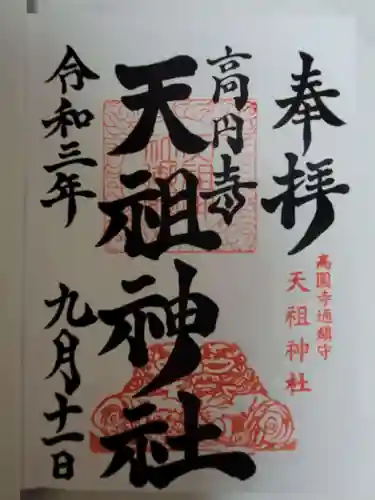 奉拝
高圓寺通鎮守
天祖神社
高円寺
天祖神社
令和三年
九月十一日